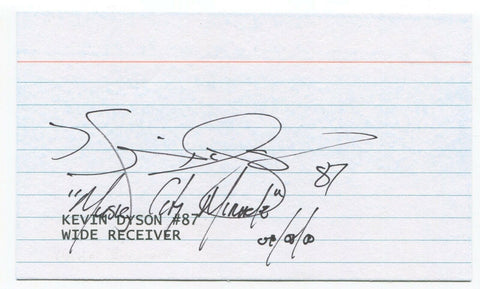 Kevin Dyson
87
"Music City Miracle"
KEVIN DYSON #87
WIDE RECEIVER